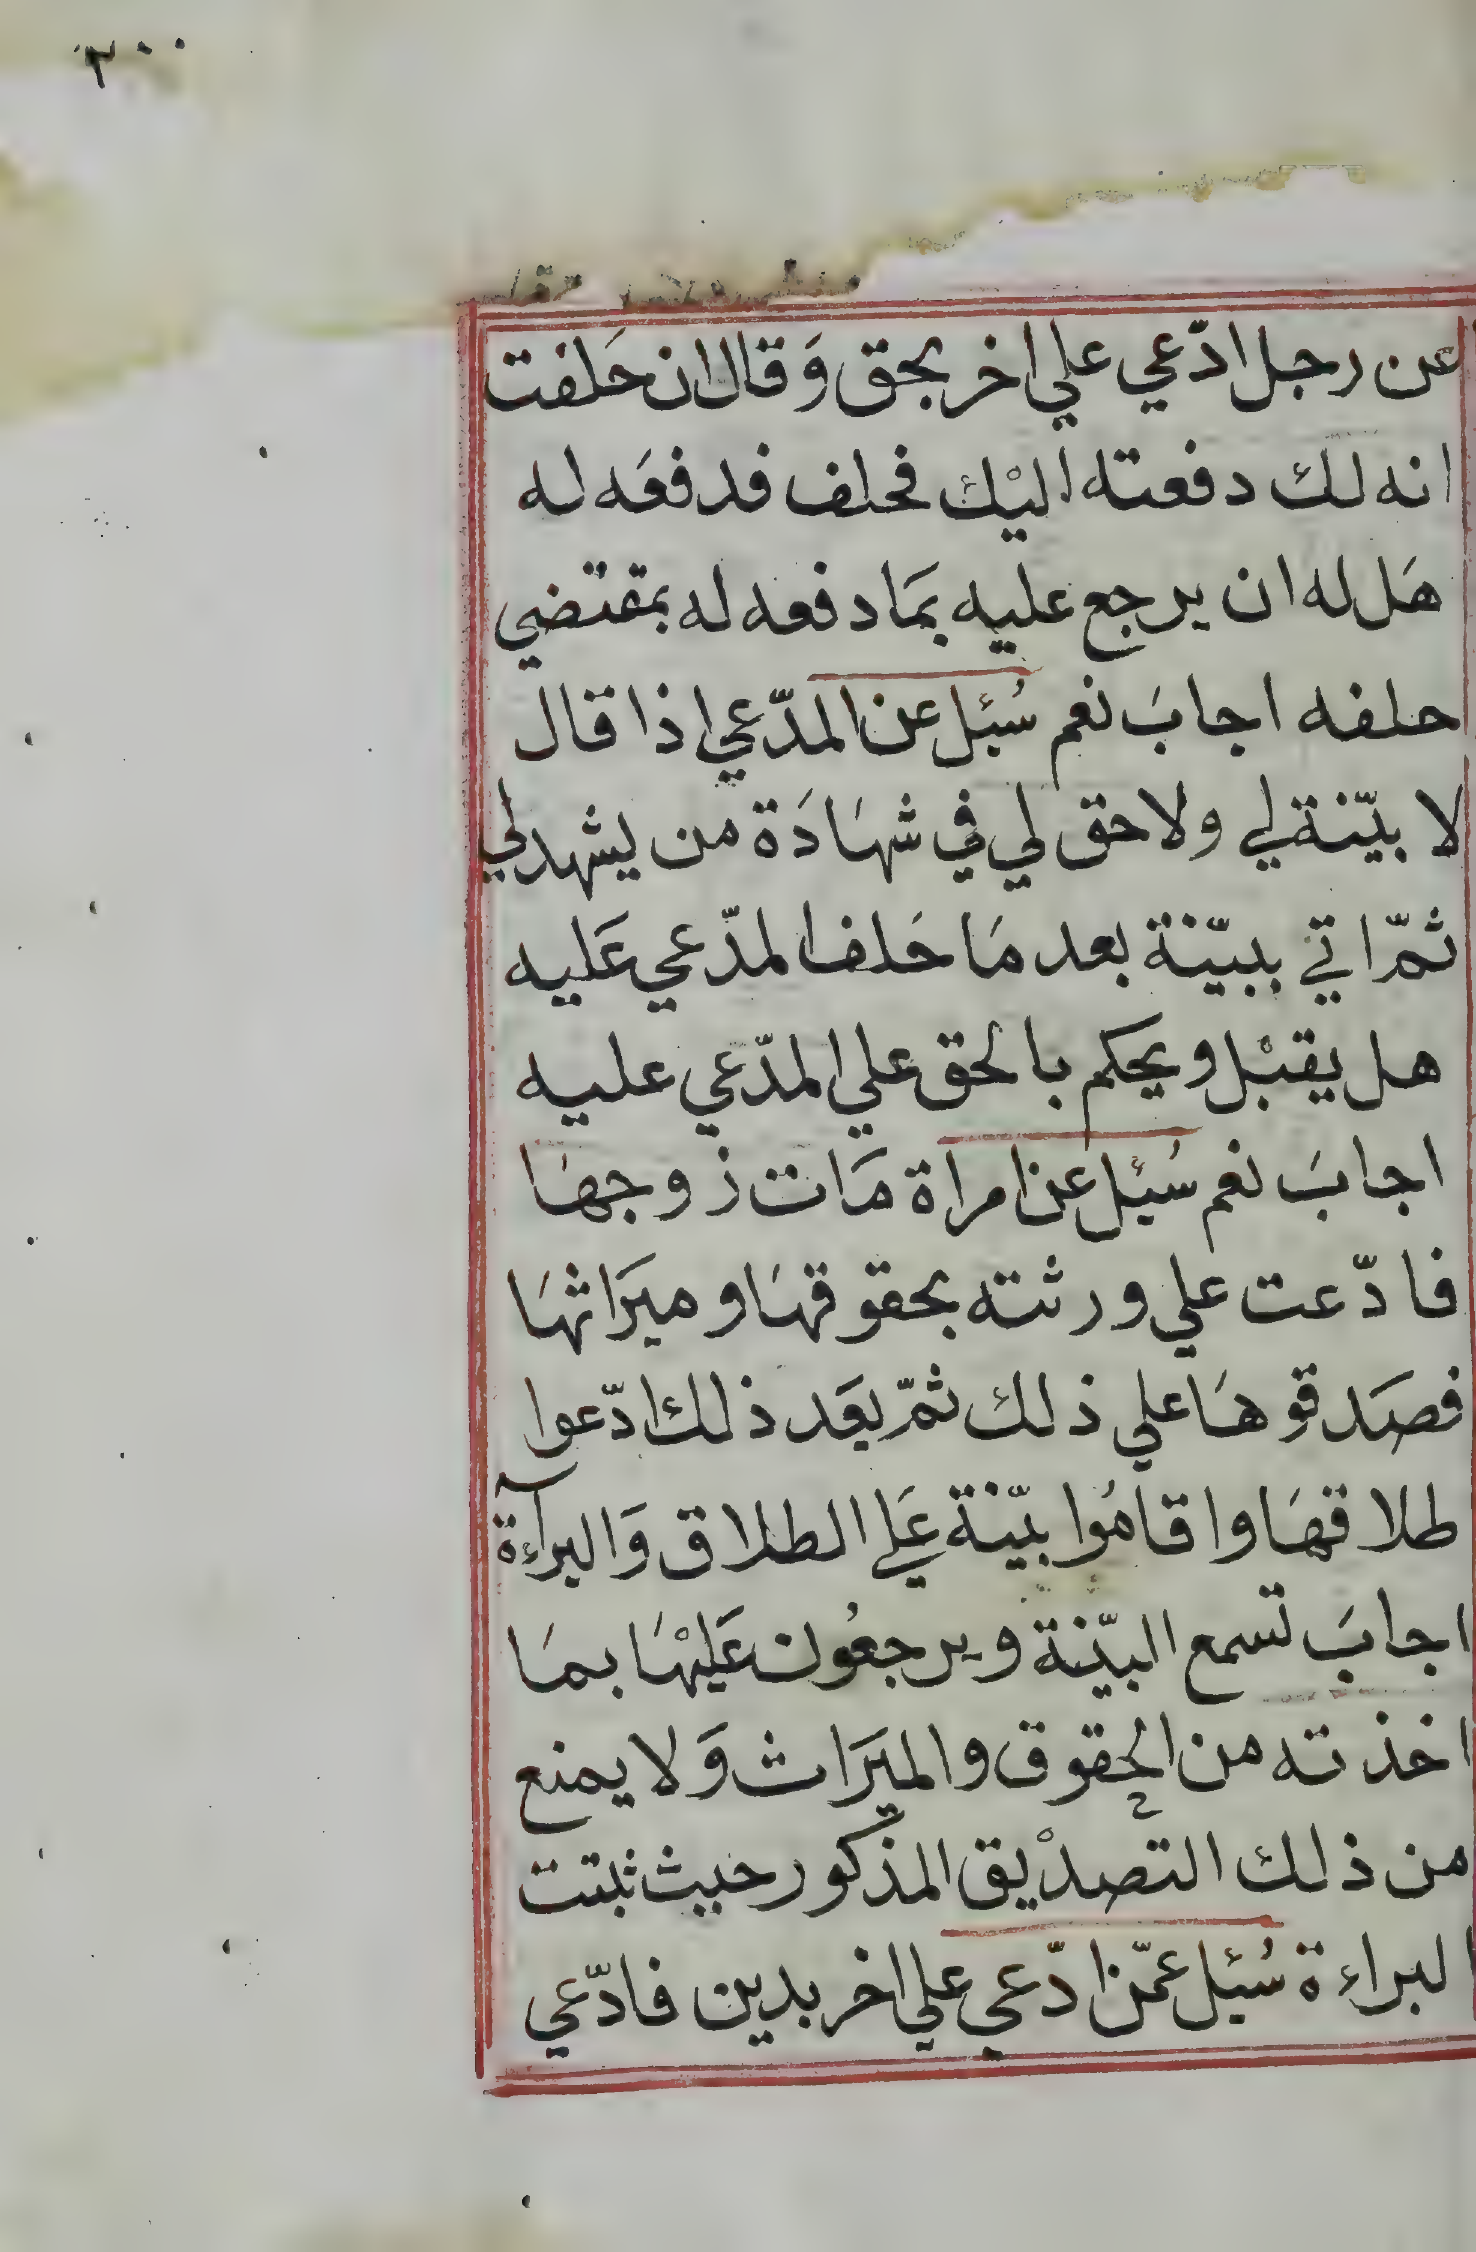 ٣٠٠
عن رجل ادّعي علي اخر بحق وَقال ان حَلفت
انه لك دفعته اليْك فحلف فدفعَه له
هَل له ان يرجع عليه بمَا دفعه له بمقتضي
حلفه اجابَ نعم سُئل عن المدّعي اذا قال
لا بيّنة لي ولا حق لي في شهَادَة من يشهد لي
ثمّ اتي ببيّنة بعد مَا حَلف المدّعي عَليه
هل يقبْل ويحكم بالحق علي المدّعي عليه
اجابَ نعم سُئيل عن امراة مَات زوجهَا
فادّعت علي ورثته بحقوقهَا وميرَاثهَا
فصَدقوهَا علي ذلك ثمّ بعَد ذلك ادّعوا
طلاقهَا واقامُوا بيّنة عَلي الطلاق وَالبرآءة
اجابَ تسمع البيّنة ويرجعُون عَليْهَا بمَا
اخذته من الحُقوق والميَرَاث وَلا يمنع
من ذلك التصدْيق المذكور حيث ثبتت
البراءة سُئيل عمّن ادّعي علي اخر بدين فادّعي